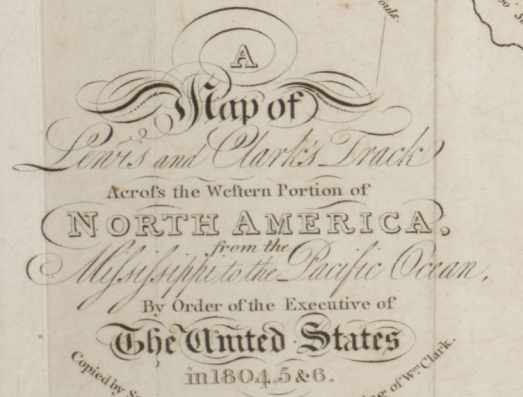 A
Map of
Lewis and Clark's Track
Acroſs the Weſtern Portion of
NORTH AMERICA.
from the
Miſsiſsippi to the Pacific Ocean,
By Order of the Executive of
The United States
in 1804.5 & 6.
Copied by
of Wm. Clark.